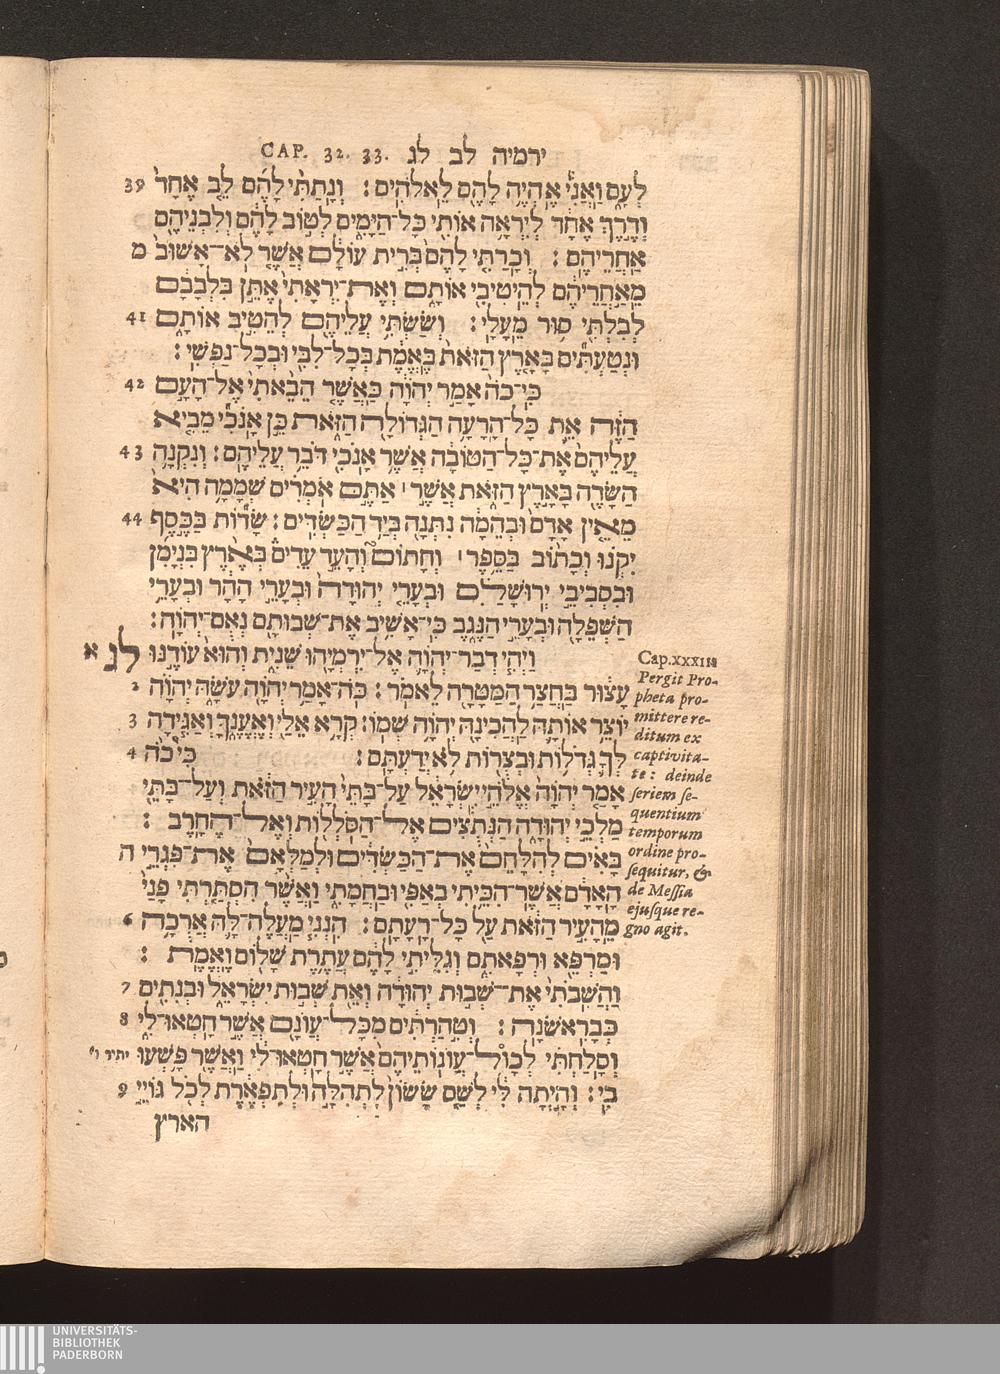 ירמיה לב לג CAP. 32. 33.
לְעָם וַאֲנִי אֶהְיֶה לָהֶם לֵאלֹהִים׃ וְנָתַתִּי לָהֶם לֵב אֶחָד 39
וְדֶרֶךְ אֶחָד לְיִרְאָה אוֹתִי כָּל־הַיָּמִים לְטוֹב לָהֶם וְלִבְנֵיהֶם
אַחֲרֵיהֶם׃ וְכָרַתִּי לָהֶם בְּרִית עוֹלָם אֲשֶׁר לֹא־אָשׁוּב מ
מֵאַחֲרֵיהֶם לְהֵיטִיבִי אוֹתָם וְאֶת־יִרְאָתִי אֶתֵּן בִּלְבָבָם
לְבִלְתִּי סוּר מֵעָלָי׃ וְשַׂשְׂתִּי עֲלֵיהֶם לְהֵטִיב אוֹתָם 41
וּנְטַעְתִּים בָּאָרֶץ הַזֹּאת בֶּאֱמֶת בְּכָל־לִבִּי וּבְכָל־נַפְשִׁי׃
כִּי־כֹה אָמַר יְהוָה כַּאֲשֶׁר הֵבֵאתִי אֶל־הָעָם 42
הַזֶּה אֵת כָּל־הָרָעָה הַגְּדוֹלָה הַזֹּאת כֵּן אָנֹכִי מֵבִיא
עֲלֵיהֶם אֶת־כָּל־הַטּוֹבָה אֲשֶׁר אָנֹכִי דֹּבֵר עֲלֵיהֶם׃ וְנִקְנָה 43
הַשָּׂדֶה בָּאָרֶץ הַזֹּאת אֲשֶׁר ׀ אַתֶּם אֹמְרִים שְׁמָמָה הִיא
מֵאֵין אָדָם וּבְהֵמָה נִתְּנָה בְּיַד הַכַּשְׂדִּים׃ שָׂדוֹת בַּכֶּסֶף 44
יִקְנוּ וְכָתוֹב בַּסֵּפֶר ׀ וְחָתוֹם וְהָעֵד עֵדִים בְּאֶרֶץ בִּנְיָמִן
וּבִסְבִיבֵי יְרוּשָׁלִַם וּבְעָרֵי יְהוּדָה וּבְעָרֵי הָהָר וּבְעָרֵי
הַשְּׁפֵלָה וּבְעָרֵי הַנֶּגֶב כִּי־אָשִׁיב אֶת־שְׁבוּתָם נְאֻם־יְהוָה׃
וַיְהִי דְבַר־יְהוָה אֶל־יִרְמְיָהוּ שֵׁנִית וְהוּא עוֹדֶנּוּ לג א
עָצוּר בַּחֲצַר הַמַּטָּרָה לֵאמֹר׃ כֹּה־אָמַר יְהוָה עֹשָׂהּ יְהוָה 2
יוֹצֵר אוֹתָהּ לַהֲכִינָהּ יְהוָה שְׁמוֹ׃ קְרָא אֵלַי וְאֶעֱנֶךָּ וְאַגִּידָה 3
לְּךָ גְּדֹלוֹת וּבְצֻרוֹת לֹא יְדַעְתָּם׃ כִּי כֹה 4
אָמַר יְהוָה אֱלֹהֵי יִשְׂרָאֵל עַל־בָּתֵּי הָעִיר הַזֹּאת וְעַל־בָּתֵּי
מַלְכֵי יְהוּדָה הַנְּתֻצִים אֶל־הַסֹּלְלוֹת וְאֶל־הֶחָרֶב׃
בָּאִים לְהִלָּחֵם אֶת־הַכַּשְׂדִּים וּלְמַלְאָם אֶת־פִּגְרֵי ה
הָאָדָם אֲשֶׁר־הִכֵּיתִי בְאַפִּי וּבַחֲמָתִי וַאֲשֶׁר הִסְתַּרְתִּי פָנַי
מֵהָעִיר הַזֹּאת עַל כָּל־רָעָתָם׃ הִנְנִי מַעֲלֶה־לָּהּ אֲרֻכָה 6
וּמַרְפֵּא וּרְפָאתִם וְגִלֵּיתִי לָהֶם עֲתֶרֶת שָׁלוֹם וֶאֱמֶת׃
וַהֲשִׁבֹתִי אֶת־שְׁבוּת יְהוּדָה וְאֵת שְׁבוּת יִשְׂרָאֵל וּבְנִתִים 7
כְּבָרִאשֹׁנָה׃ וְטִהַרְתִּים מִכָּל־עֲוֹנָם אֲשֶׁר חָטְאוּ־לִי 8
וְסָלַחְתִּי לְכוֹל־עֲוֹנוֹתֵיהֶם אֲשֶׁר חָטְאוּ־לִי וַאֲשֶׁר פָּשְׁעוּ יתיר ו׳
בִי׃ וְהָיְתָה לִּי לְשֵׁם שָׂשׂוֹן לִתְהִלָּה וּלְתִפְאֶרֶת לְכֹל גּוֹיֵי 9
הארץ
Cap.XXXIII
Pergit Pro-
pheta pro-
mittere re-
ditum ex
captivita-
te: deinde
seriem se-
quentium
temporum
ordine pro-
sequitur, &
de Messia
ejusque re-
gno agit.
UNIVERSITÄTS-
BIBLIOTHEK
PADERBORN